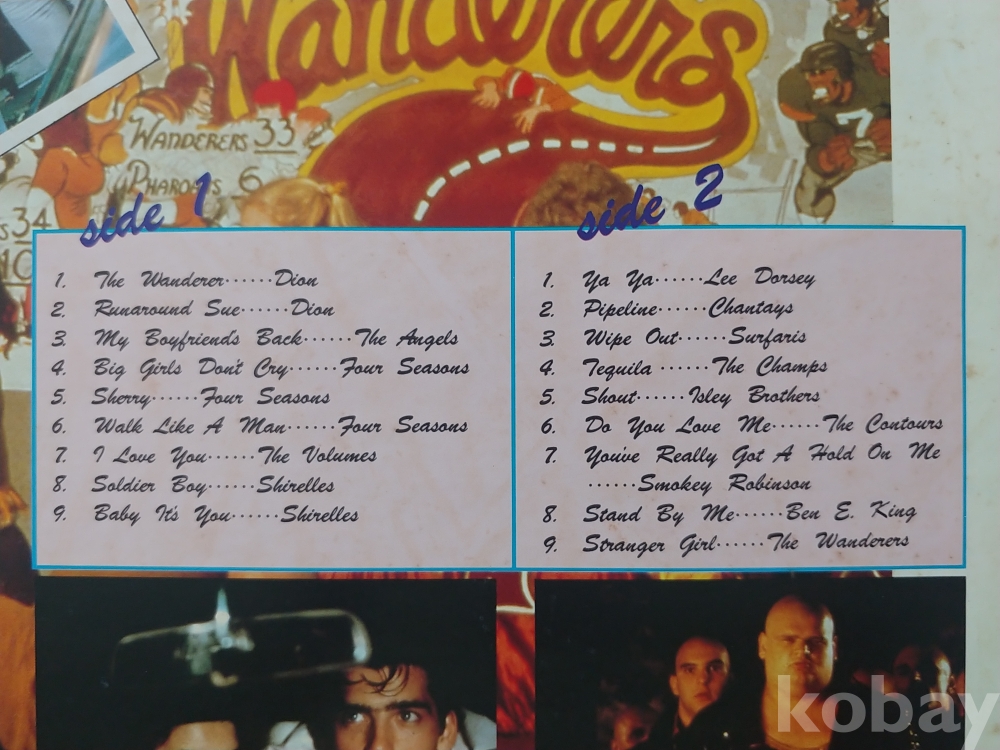 Wanderers
WANDERERS 33
PHAROAHS 6
34
10
7
side 1
1. The Wanderer······Dion
2. Runaround Sue······Dion
3. My Boyfriend's Back······The Angels
4. Big Girls Don't Cry······Four Seasons
5. Sherry······Four Seasons
6. Walk Like A Man······Four Seasons
7. I Love You······The Volumes
8. Soldier Boy······Shirelles
9. Baby It's You······Shirelles
side 2
1. Ya Ya······Lee Dorsey
2. Pipeline······Chantays
3. Wipe Out······Surfaris
4. Tequila ······The Champs
5. Shout······Isley Brothers
6. Do You Love Me······The Contours
7. You've Really Got A Hold On Me
······Smokey Robinson
8. Stand By Me······Ben E. King
9. Stranger Girl······The Wanderers
kobay